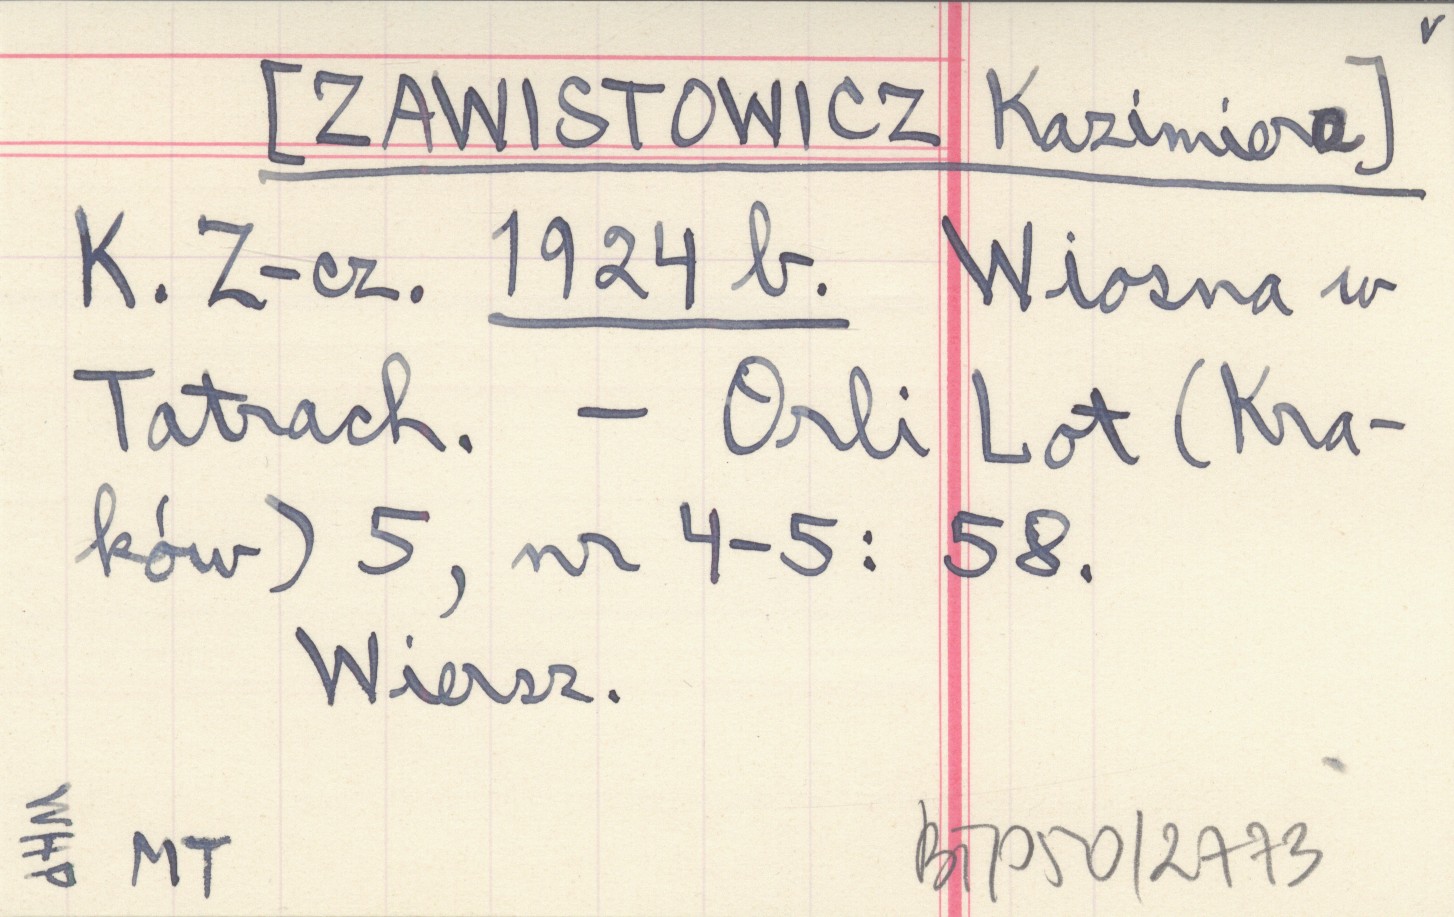 v
[ZAWISTOWICZ Kazimiera]
K. Z-cz. 1924 b. Wiosna w
Tatrach. – Orli Lot (Kra-
ków) 5, nr 4-5: 58.
Wiersz.
WHP
MT
BTP50/2773